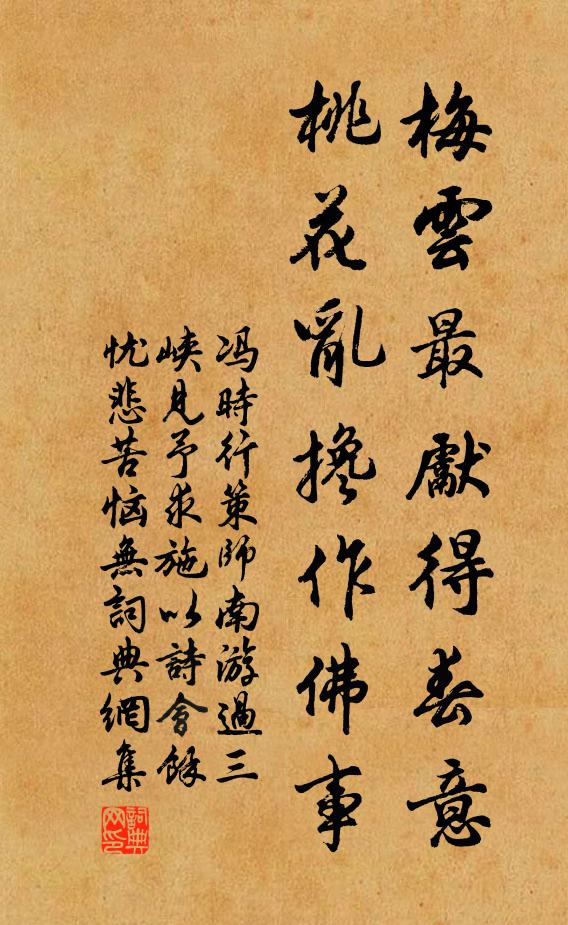 梅雲最獻得春意
桃花亂攙作佛事
冯時行策師南游過三
峽見予求施以詩會餘
忧悲苦恼無詞典網集
詞典
网印